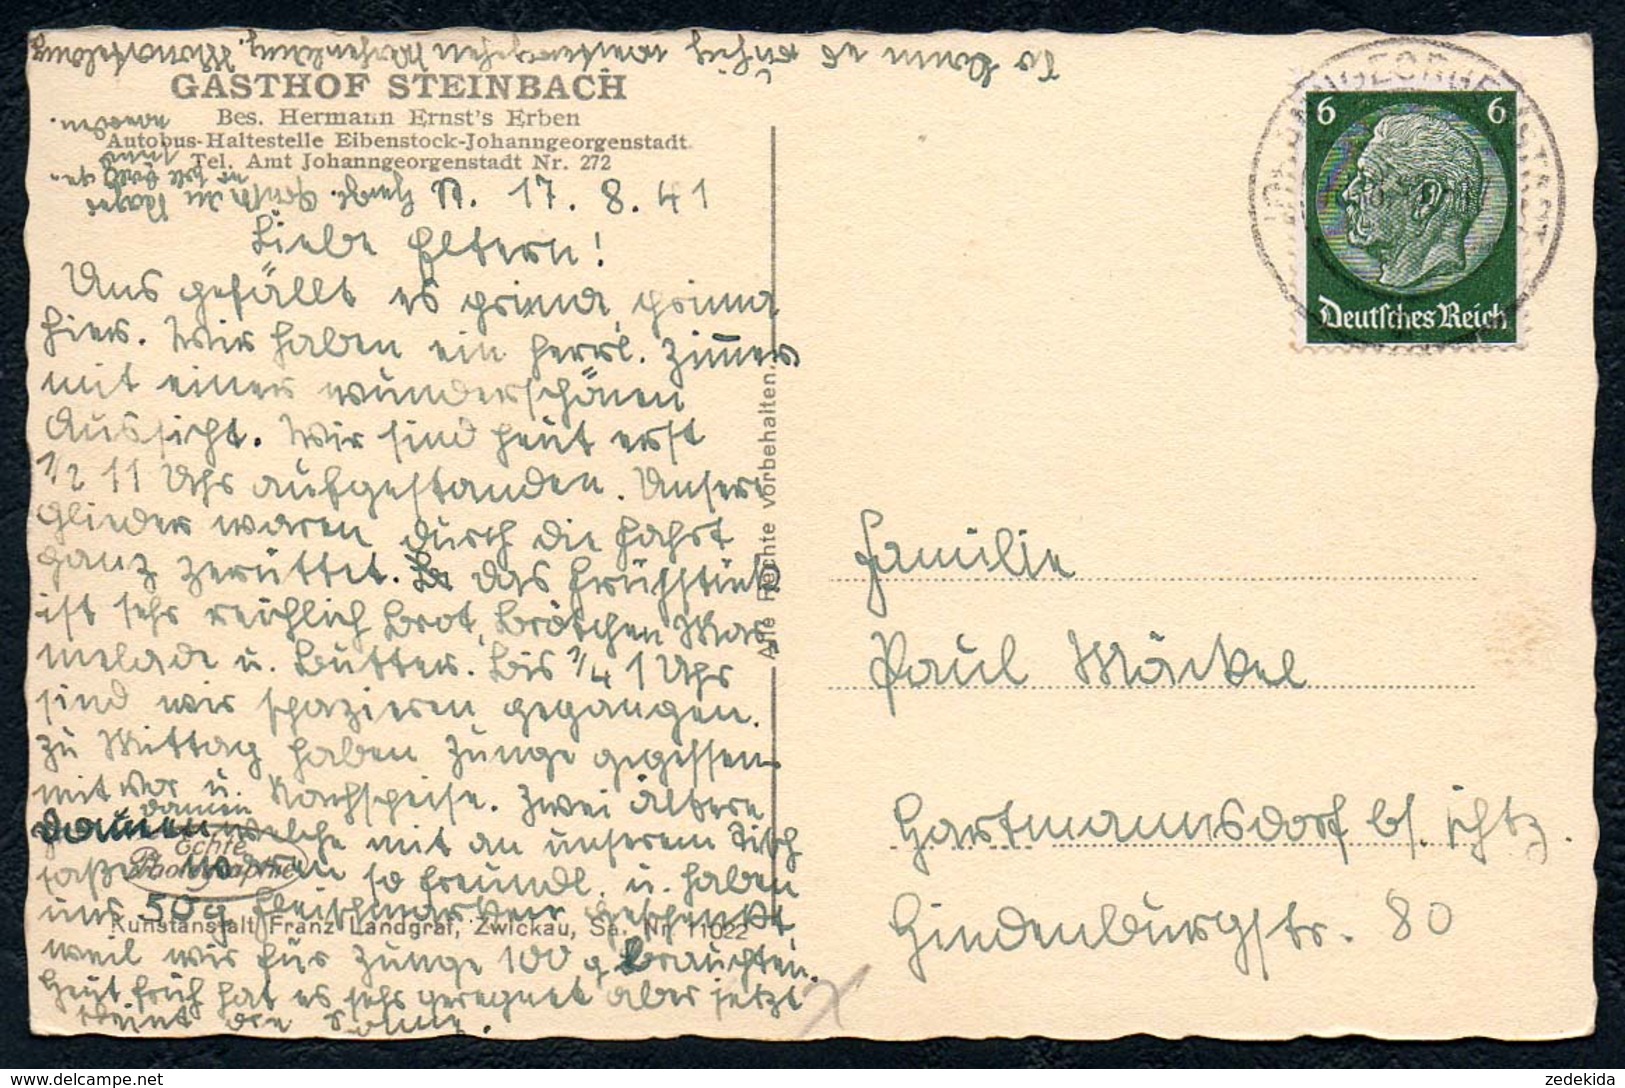 GASTHOF STEINBACH
Bes. Hermann Ernst's Erben
Autobus-Haltestelle Eibenstock-Johanngeorgenstadt
Tel. Amt Johanngeorgenstadt Nr. 272
17. 8. 41
Liebe Eltern!
Uns gefällt es prima, prima
hier. Wir haben ein herrl. Zimmer
mit einer wunderschönen
Aussicht. Wir sind heut erst
1/2 11 Uhr aufgestanden. Unsere
Glieder waren durch die Fahrt
ganz zerüttet. Das Frühstück
ist sehr reichlich Brot, Brötchen Mar-
melade u. Butter. Bis 3/4 1 Uhr
sind wir spazieren gegangen.
Zu Mittag haben Zunge gegessen
mit vor u. Nachspeise. Zwei ältere
Damen
welche mit an unserem Tisch
saßen waren so freundl. u. haben
uns 50 g Fleischmarken geschenkt,
weil wir für Zunge 100 g brauchten.
Heut früh hat es sehr geregnet aber jetzt
scheint die Sonne.
echte
Photographie
Kunstanstalt Franz Landgraf, Zwickau, Sa. Nr. 11022
Alle Rechte vorbehalten.
JOHANNGEORGENSTADT
6 6
Deutsches Reich
Familie
Paul Möckel
Hartmannsdorf b/
Hindenburgstr. 80
zedekida